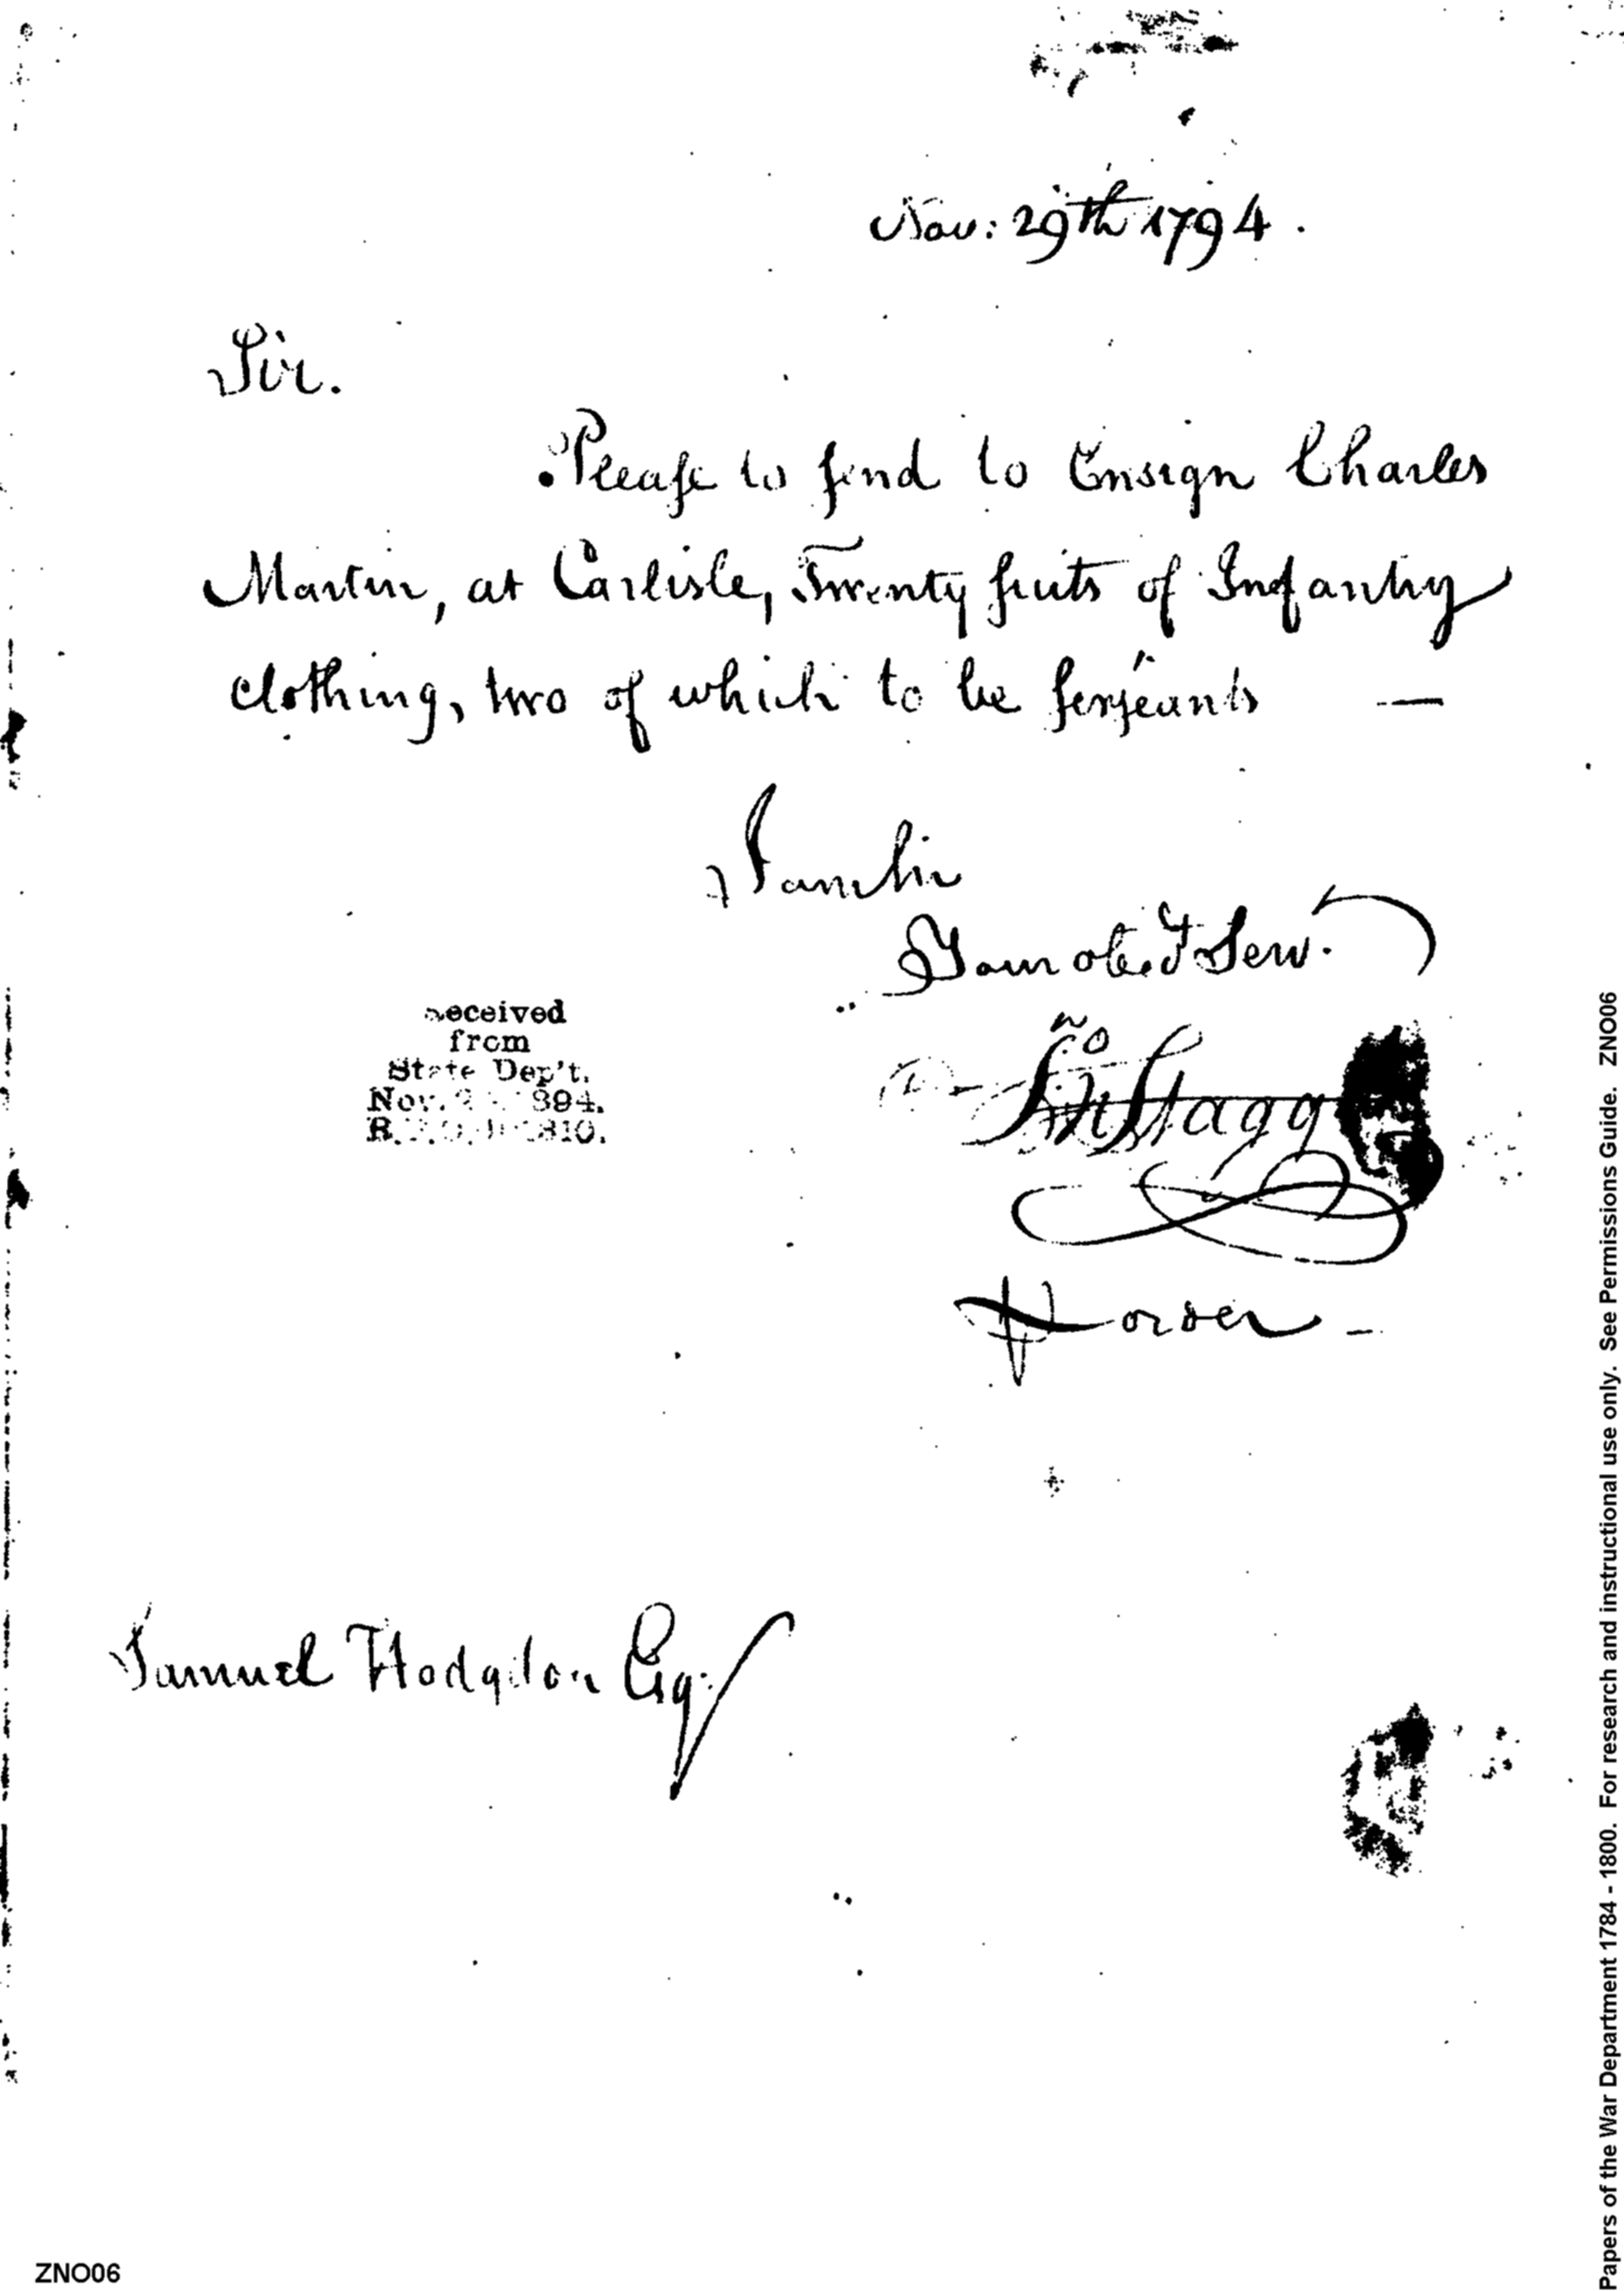 Nov: 29th 1794.
Sir.
Please to send to Ensign Charles
Martin, at Carlisle, Twenty suits of Infantry
clothing, two of which to be serjeants —
I am Sir
Your obed Serv.
Jno Stagg
Samuel Hodgdon Esq:
Received
from
State Dep't.
Nov. 1894.
ZNO06
Papers of the War Department 1784 - 1800. For research and instructional use only. See Permissions Guide. ZNO06